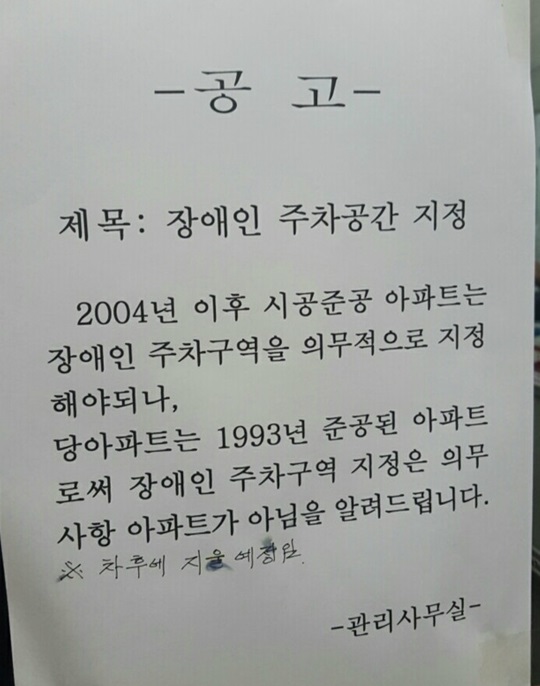 -공 고-
제목: 장애인 주차공간 지정
2004년 이후 시공준공 아파트는
장애인 주차구역을 의무적으로 지정
해야되나,
당아파트는 1993년 준공된 아파트
로써 장애인 주차구역 지정은 의무
사항 아파트가 아님을 알려드립니다.
※ 차후에 지울 예정임.
-관리사무실-